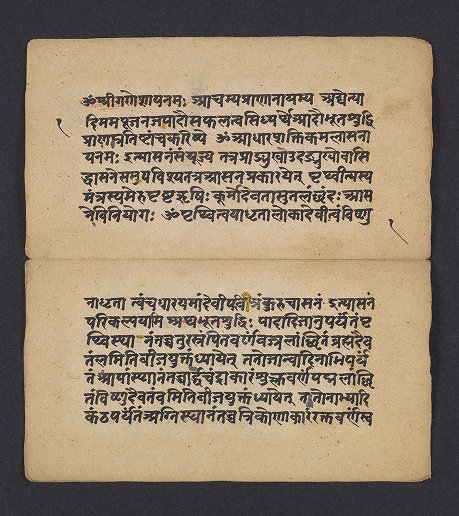 ॐश्रीगणेशायनमः आचम्यप्राणानायम्य अद्येत्या
दिममपूजनजपादौसफलत्वसिध्यर्थेआदौभूतशुद्धि
प्राणप्रतिष्टांचकरिष्ये ॐआधारशक्तिकमलासना
यनमः इत्यासनंसंपूज्य तत्रप्राङ्मुखोउदङ्मुखोवासि
द्धासनेसमुपविश्यतत्रआसनप्रकारयेत् पृथ्वीत्यस्य
मंत्रस्यमेरुपृष्टऋषिः कूर्मोदेवतासुतलंछंदः आस
नेविनियोगः ॐपृथ्वित्वयाधृतालोकादेवीत्वंविष्णु
नाधृता त्वंचधारयमांदेवीपवित्रंकुरुचासनं इत्यासनं
परिकल्पयामि अथभूतशुद्धिः पादादिजानुपर्यंतंपृ
थ्विस्था नंतच्चतुरस्रंपीतवर्णवज्रलांछितंब्रह्मदैव
तंलमितिबीजयुक्तंध्यायेत् ततोजान्वादिनाभिपर्यं
तं आपांस्थानंतच्चार्द्धचंद्राकारंशुक्लवर्णपद्मलांछि
तंविष्णुदैवतंवमितिबीजयुक्तंध्यायेत् ततोनाभ्यादि
कंठपर्यंतंअग्निस्थानंतच्चत्रिकोणाकारंरक्तवर्णस्व